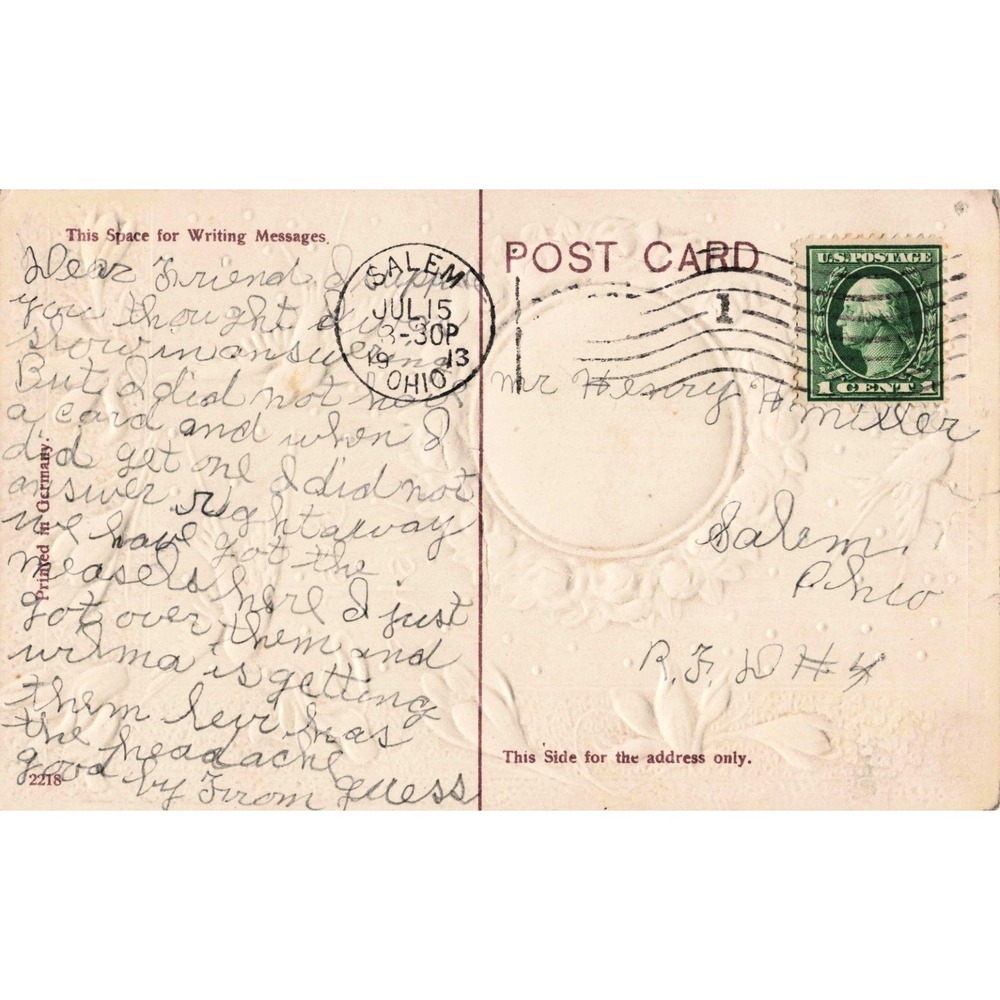 This Space for Writing Messages.
Dear Friend I suppose
you thought I was
slow in answering
But I did not have
a card and when I
did get one I did not
answer right away
we have got the
measels here I just
got over them and
wilma is getting
them levi has
the headache
good by From guess
Printed in Germany.
2218
POST CARD
SALEM
JUL 15
3-30P
19 13
OHIO
1
U.S. POSTAGE
1 CENT 1
Mr Henry H Miller
Salem
Ohio
R.F.D # 4
This Side for the address only.